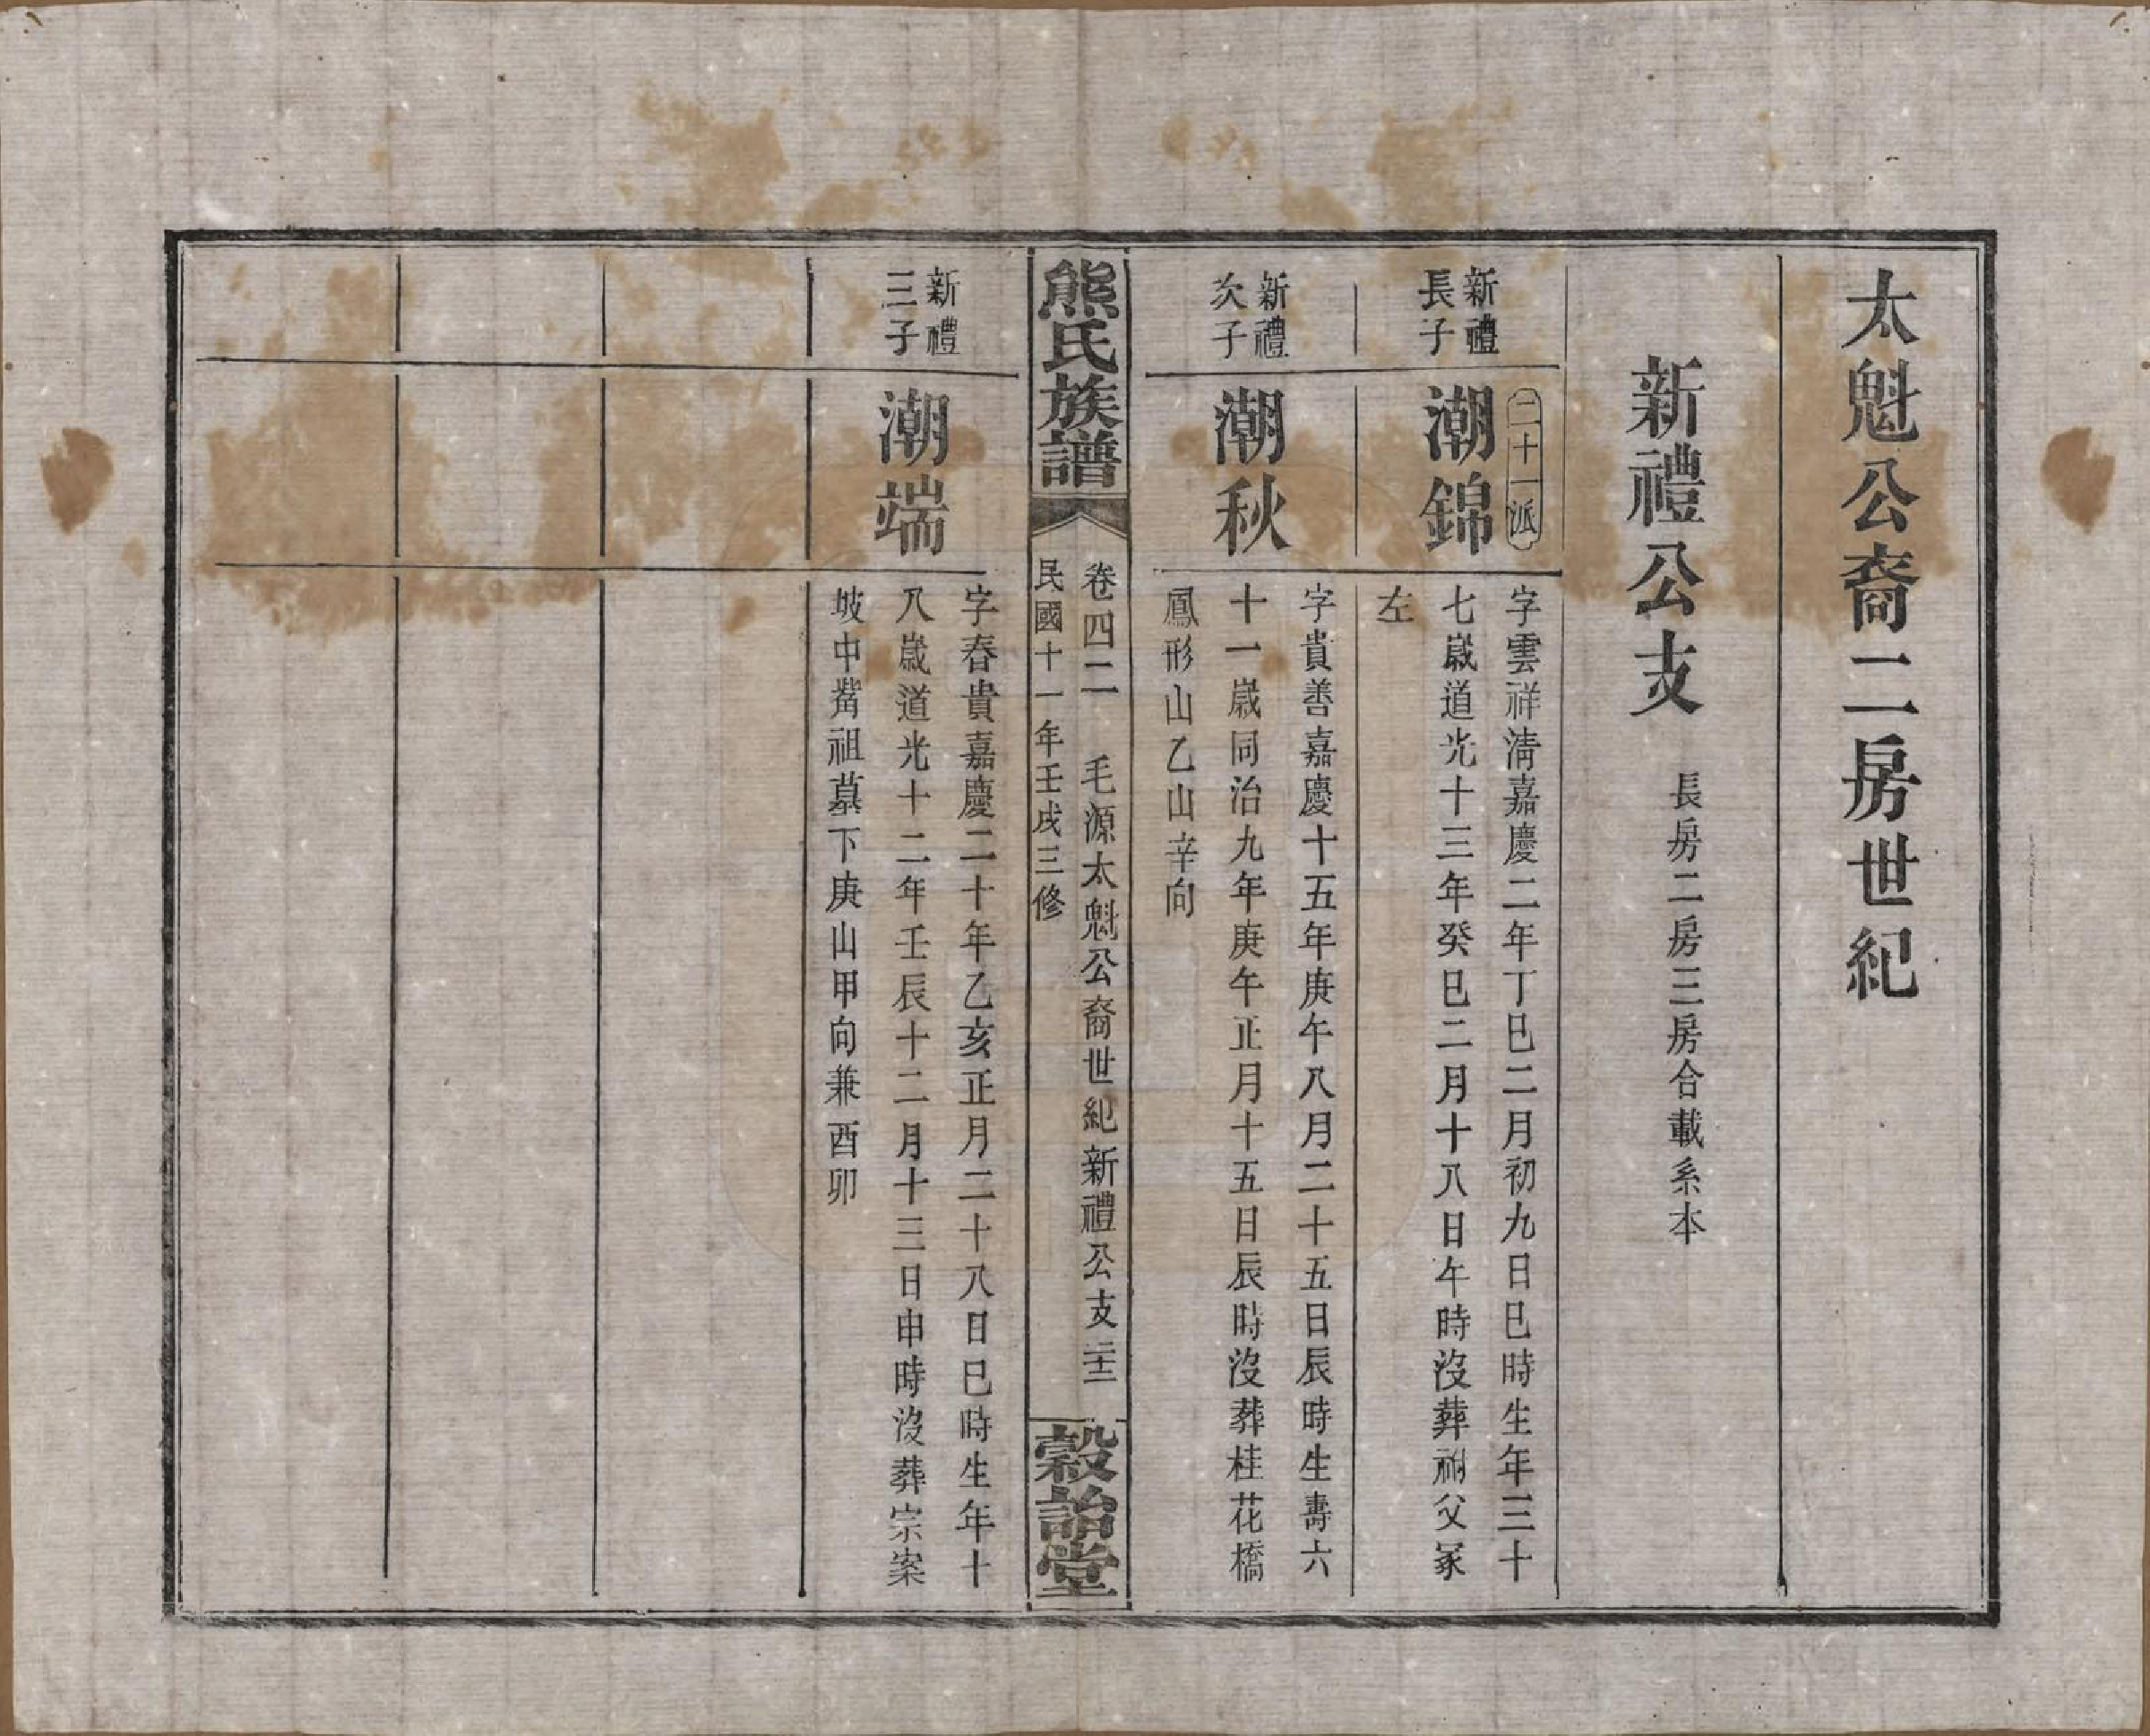 太魁公裔二房世紀
新禮公支
長房二房三房合載系本
新禮
長子
二十一派
潮錦
字雲祥清嘉慶二年丁巳二月初九日巳時生年三十
七歲道光十三年癸巳二月十八日午時沒葬祔父冢
左
新禮
次子
潮秋
字貴善嘉慶十五年庚午八月二十五日辰時生壽六
十一歲同治九年庚午正月十五日辰時沒葬桂花橋
鳳形山乙山辛向
熊氏族譜
卷四二 毛源太魁公裔世紀新禮公支
民國十一年壬戌三修
穀詒堂
新禮
三子
潮端
字春貴嘉慶二十年乙亥正月二十八日巳時生年十
八歲道光十二年壬辰十二月十三日申時沒葬宗案
坡中嘴祖墓下庚山甲向兼酉卯